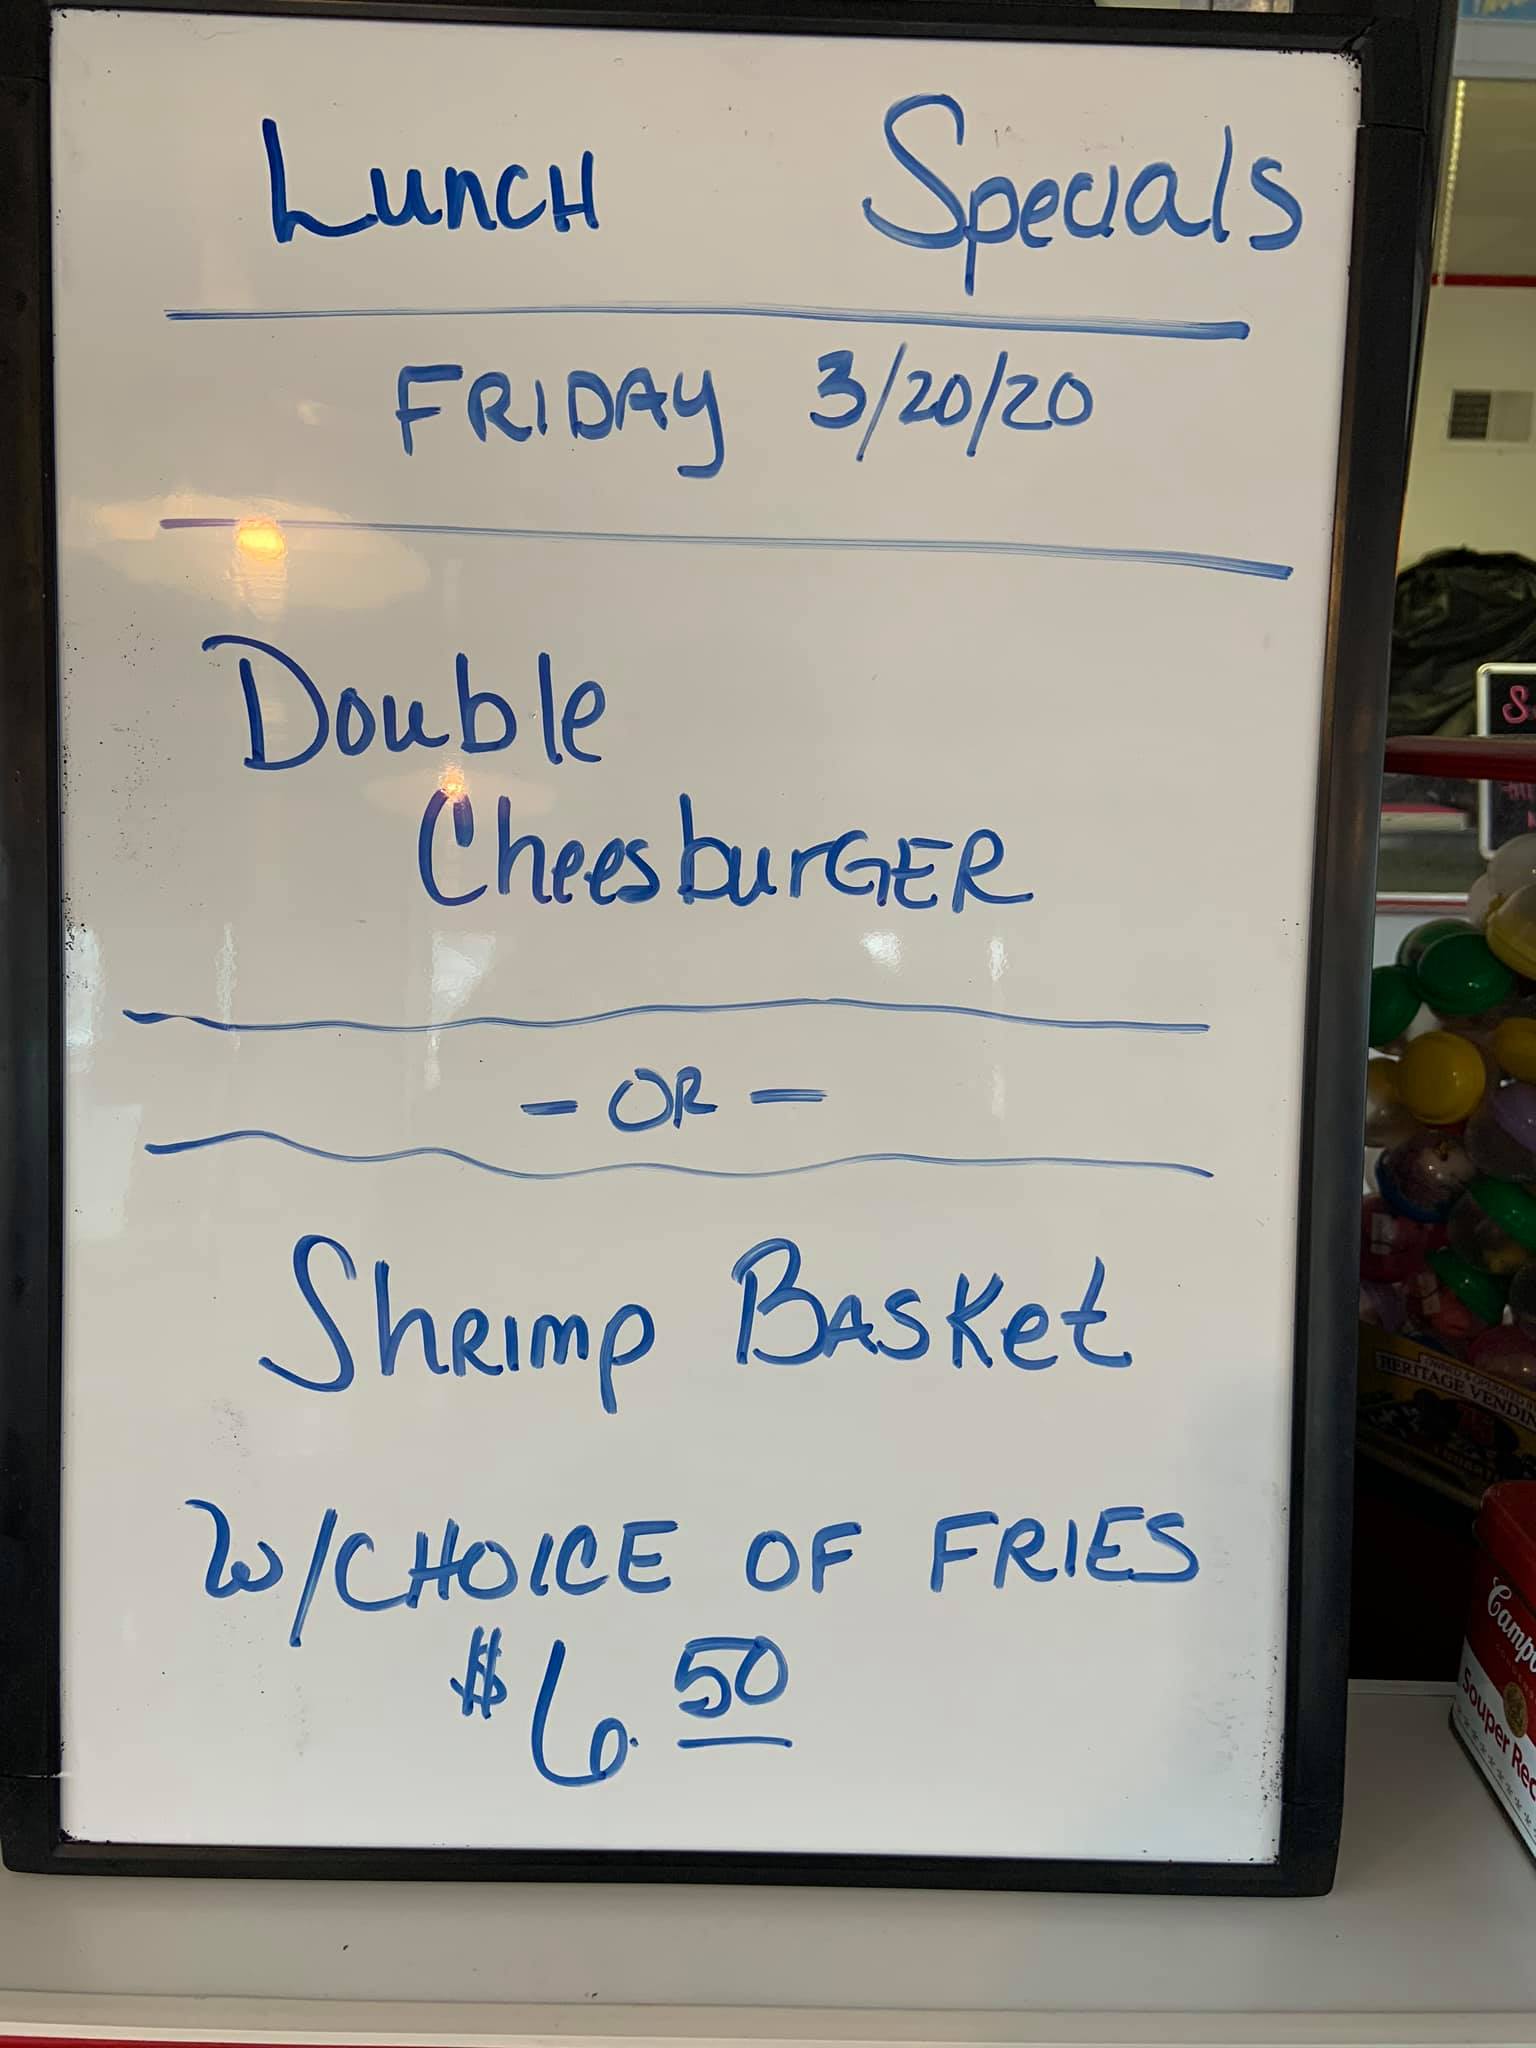 Lunch Specials
FRIDAY 3/20/20
Double
CheesburGER
- OR -
Shrimp Basket
W/CHOICE OF FRIES
$6.50
S
HERITAGE VENDIN
Camp
Souper Rec